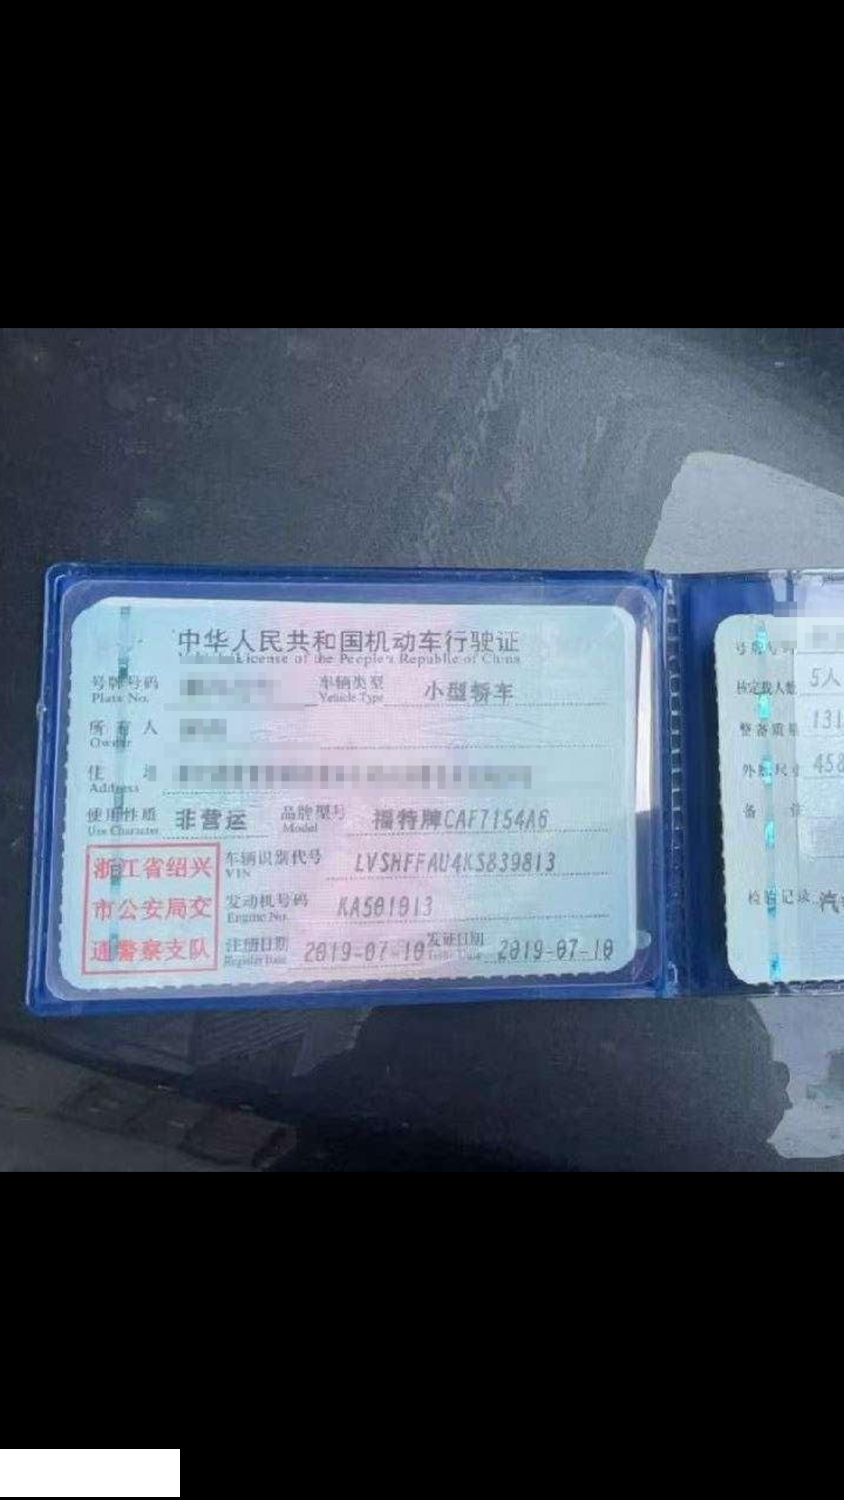 中华人民共和国机动车行驶证
License of the People's Republic of China
号牌号码 车辆类型 小型轿车
Plate No. Vehicle Type
所有人
Owner
住
Address
使用性质 非营运 品牌型号 福特牌CAF7154A6
Use Character Model
浙江省绍兴
市公安局交
通警察支队
车辆识别代号 LVSHFFAU4KS839813
VIN
发动机号码 KA501013
Engine No.
注册日期 2019-07-10 发证日期 2019-07-10
Register Date Issue Date
号牌号码
核定载人数 5人
整备质量 131
外 尺 458
备
检 记录 汽